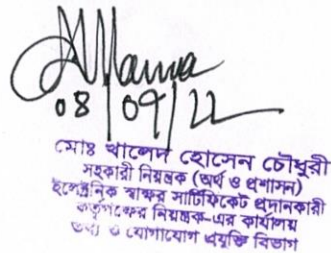 08/09/22
মোঃ খালেদ হোসেন চৌধুরী
সহকারী নিয়ন্ত্রক (অর্থ ও প্রশাসন)
ইলেক্ট্রনিক স্বাক্ষর সার্টিফিকেট প্রদানকারী
কর্তৃপক্ষের নিয়ন্ত্রক-এর কার্যালয়
তথ্য ও যোগাযোগ প্রযুক্তি বিভাগ